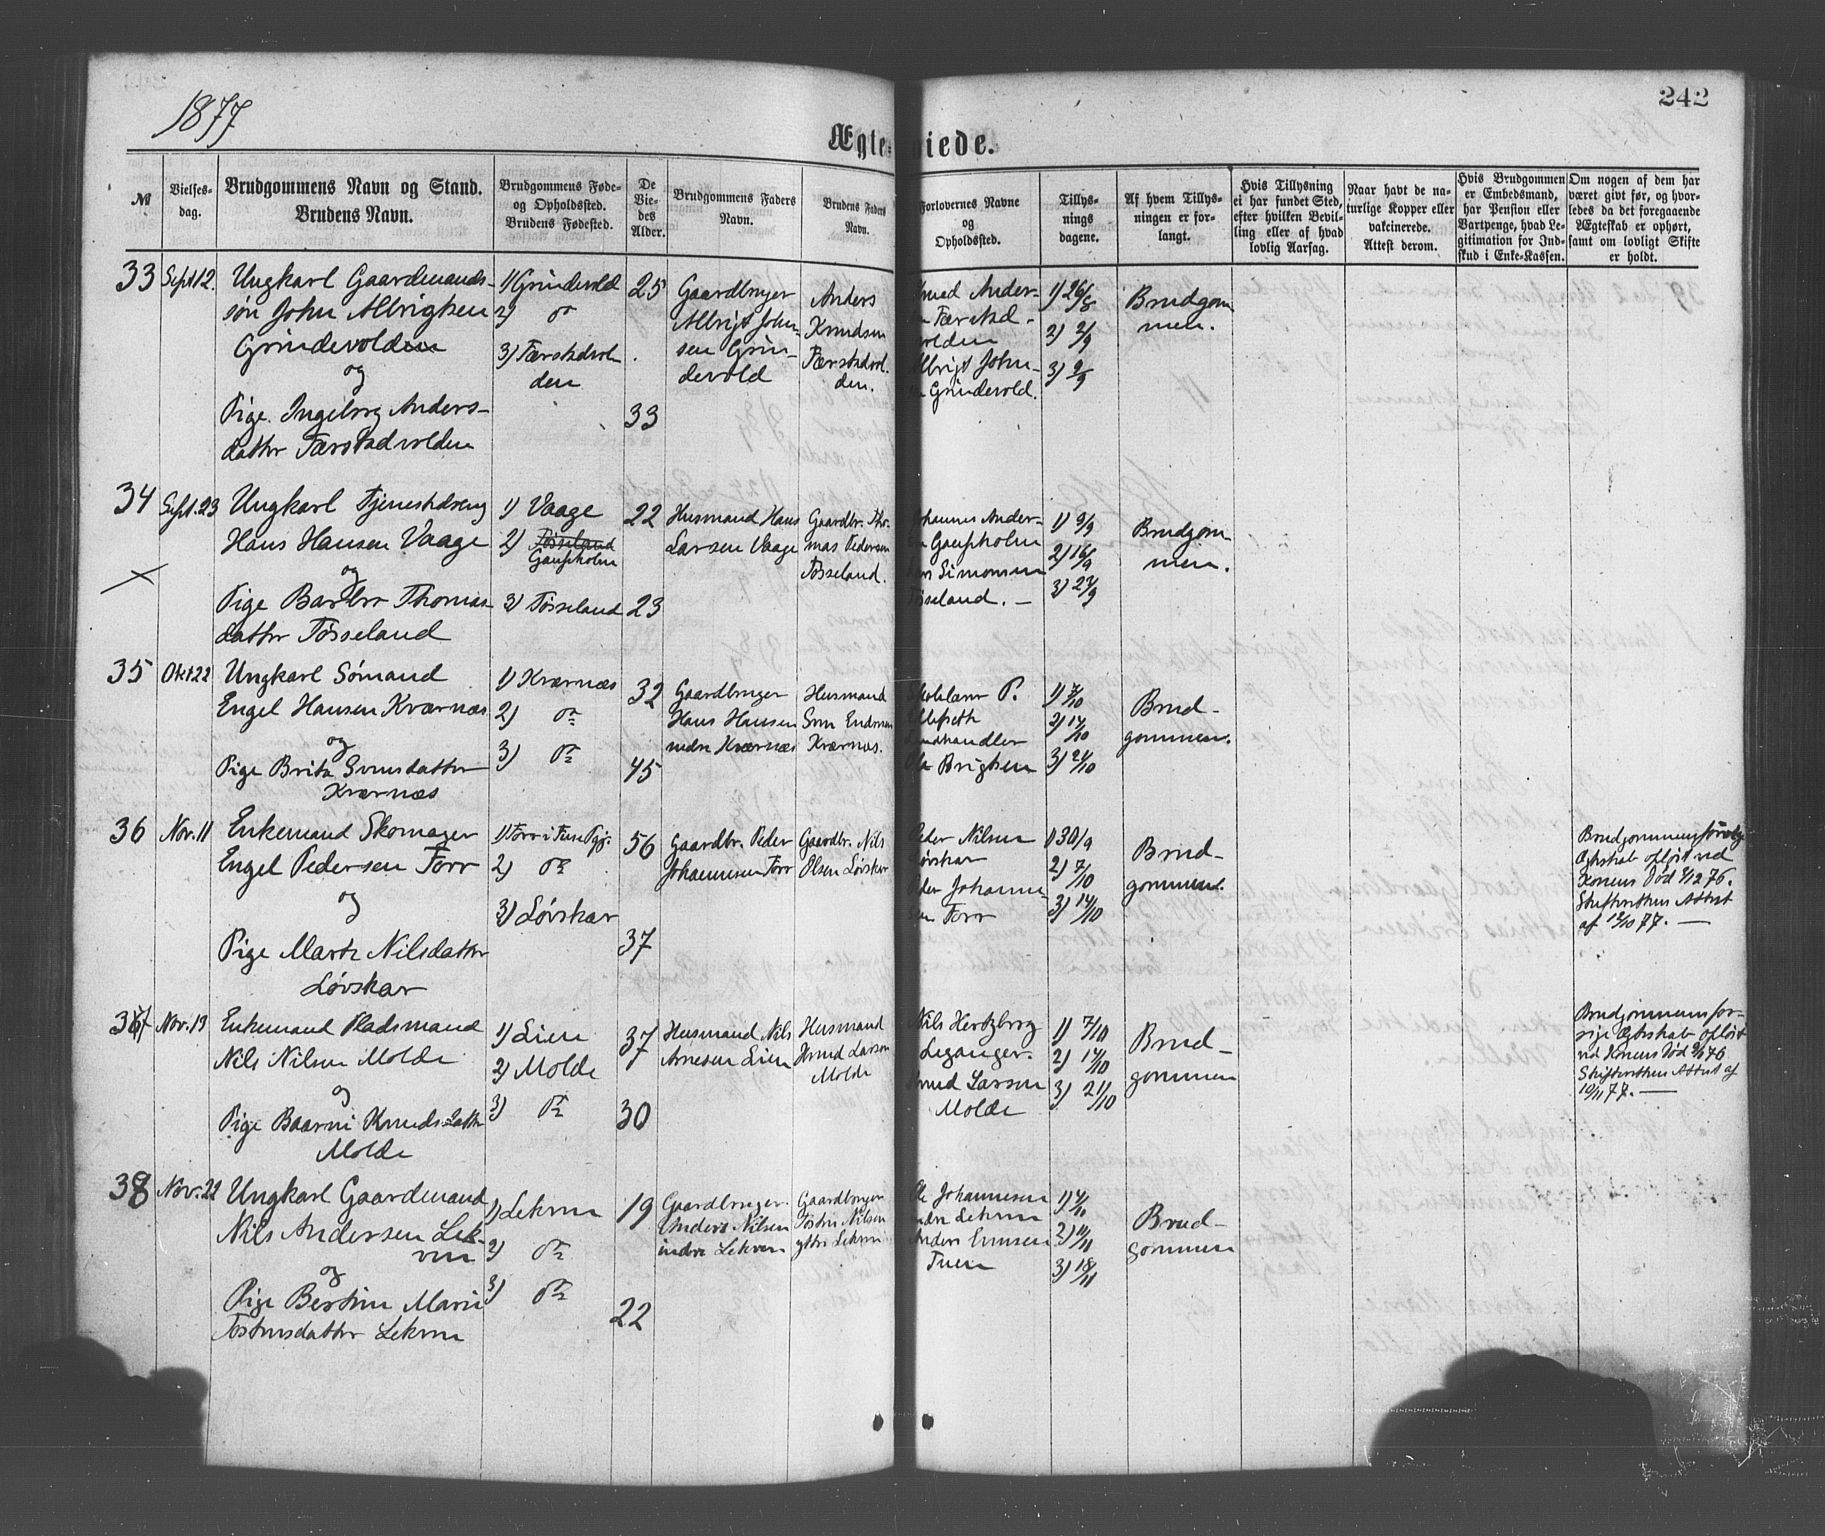 242
1877
Ægteviede.
№
Vielses-
dag.
Brudgommens Navn og Stand.
Brudens Navn.
Brudgommens Føde-
og Opholdsted.
Brudens Fødested.
De
Vie-
des
Alder.
Brudgommens Faders
Navn.
Brudens Faders
Navn.
Forlovernes Navne
og
Opholdssted.
Tillys-
nings
dagene.
Af hvem Tillys-
ningen er for-
langt.
Hvis Tillysning
ei har fundet Sted,
efter hvilken Bevil-
ling eller af hvad
lovlig Aarsag.
Naar havt de na-
turlige Kopper eller
vakcinerede.
Attest derom.
Hvis Brudgommen
er Embedsmand,
har Pension eller
Vartpenge, hvad Le-
gitimation for Ind-
skud i Enke-Kassen.
Om nogen af dem har
været givt før, og hvor-
ledes da det foregaaende
Ægteskab er ophørt,
samt om lovligt Skifte
er holdt.
33
Sept 12.
Ungkarl Gaardmands-
søn John Albrigtsen
Grindevolden
og
Pige Ingeborg Anders-
datter Færstadvolden
1) Grindevold
2) do
3) Færstadvol-
den
25
33
Gaardbruger
Albrigt John-
sen Grin-
devold
Anders
Knudsen
Færstadvol-
den.
Knud Ander-
Færstad-
volden
Albrigt John-
Grindevold.
1) 26/8
2) 2/9
3) 9/9
Brudgom
men.
34
Sept. 23
Ungkarl Tjenestedreng
Hans Hansen Vaage
og
Pige Barbro Thomas-
datter Tøsseland
1) Vaage
2) Tøsseland
Gaupholm
3) Tøsseland
22
23
Husmand Hans
Larsen Vaage
Gaardbr. Tho-
mas Pedersen
Tøsseland.
Johannes Ander-
Gaupholm
Simonsen
Tøsseland. —
1) 9/9
2) 16/9
3) 23/9
Brudgom
men.
35
Okt 22
Ungkarl Sømand
Engel Hansen Kværnæs
og
Pige Brita Svensdatter
Kværnæs
1) Kværnæs
2) do
3) do
32
45
Gaardbruger
Hans Hansen
nedre Kværnæs
Husmand
Sven Endresen
Kværnæs.
Skolelærer P.
Landhandler
Ole Brigtsen
1) 7/10
2) 14/10
3) 21/10
Brud-
gommen.
36
Nov. 11
Enkemand Skomager
Engel Pedersen Torr
og
Pige Marta Nilsdatter
Løvskar
1) Torr i Fuse Pgj.
2) do
3) Løvskar
56
37
Gaardbr. Peder
Johannesen Torr
Gaardbr. Nils
Olsen Løvskar
Peder Nilsen
Løvskar
Peder Johanne-
sen Torr
1) 30/9
2) 7/10
3) 14/10
Brud-
gommen.
Brudgommens forrige
Ægteskab opløst ved
Konens Død
Skifterettens Attest
af 12/10 77. —
37
Nov. 13
Enkemand Pladsmand
Nils Nilsen Molde
og
Pige Baarni Knudsdatter
Molde
1) Lien
2) Molde
3) do
37
30
Husmand Nils
Arnesen Lien
Husmand
Knud Larsen
Molde
Nils Hertzberg
Leganger.
Knud Larsen
Molde
1) 7/10
2) 14/10
3) 21/10
Brud-
gommen
Brudgommens for-
rige Ægteskab opløst
ved Konens Død
Skifterettens Attest af
10/11 77. —
38
Nov. 22
Ungkarl Gaardmand
Nils Andersen Lek-
ven
og
Pige Bertine Marie
Tostensdatter Lekven
1) Lekven
2) do
3) do
19
22
Gaardbruger
Anders Nilsen
indre Lekven
Gaardbruger
Tosten Nilsen
yttre Lekven
Ole Johannesen
indre Lekven
Anders Ennsen
Tuen
1) 4/11
2) 11/11
3) 18/11
Brud-
gommen